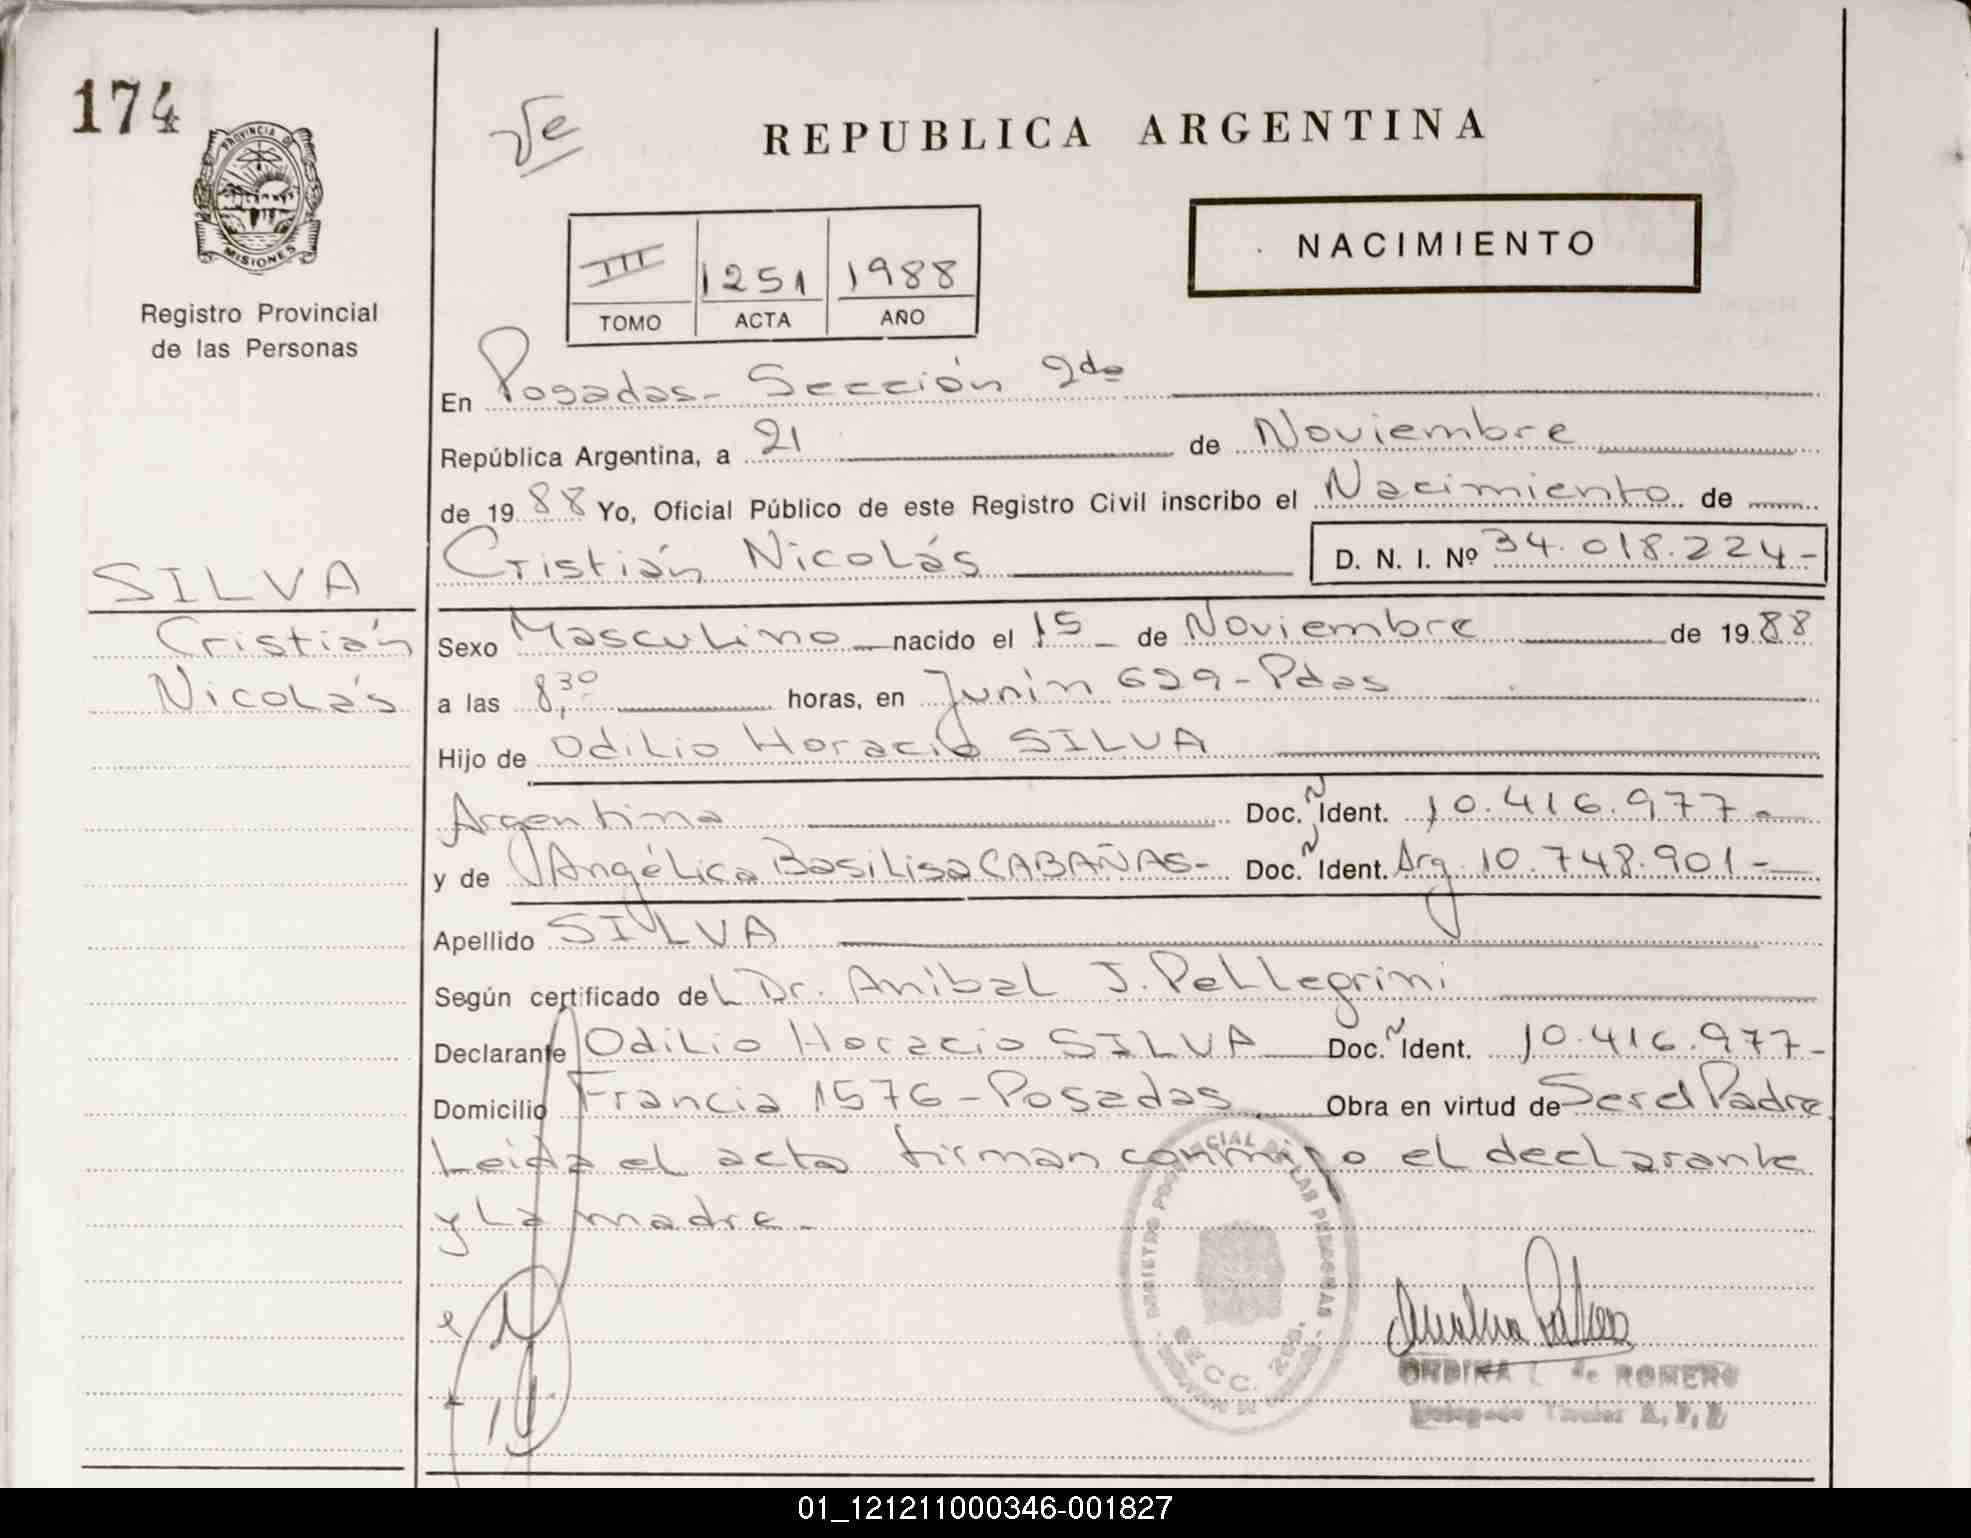 174
PROVINCIA DE
MISIONES
Registro Provincial
de las Personas
REPUBLICA ARGENTINA
NACIMIENTO
III 1251 1988
TOMO ACTA AÑO
En Posadas - Sección 2da
República Argentina, a 21 de Noviembre
de 1988 Yo, Oficial Público de este Registro Civil inscribo el Nacimiento de
Cristián Nicolás D. N. I. Nº 34.018.224-
SILVA
Cristián
Nicolás
Sexo Masculino nacido el 15 de Noviembre de 1988
a las 8,30 horas, en Junín 629 - Pdas
Hijo de Odilio Horacio SILVA
Argentina Doc. Ñ Ident. 10.416.977-
y de Angélica Basilisa CABAÑAS- Doc. Ñ Ident. Arg. 10.748.901-
Apellido SILVA
Según certificado del Dr. Anibal J. Pellegrini
Declarante Odilio Horacio SILVA Doc. Ñ Ident. 10.416.977-
Domicilio Francia 1576 - Posadas Obra en virtud de Ser el Padre
Leida el acta firman conmigo el declarante
y la madre.-
REGISTRO PROVINCIAL DE LAS PERSONAS
SECC. 2da.
ONDINA de ROMERO
Delegado Titular R.P.P.
01_121211000346-001827